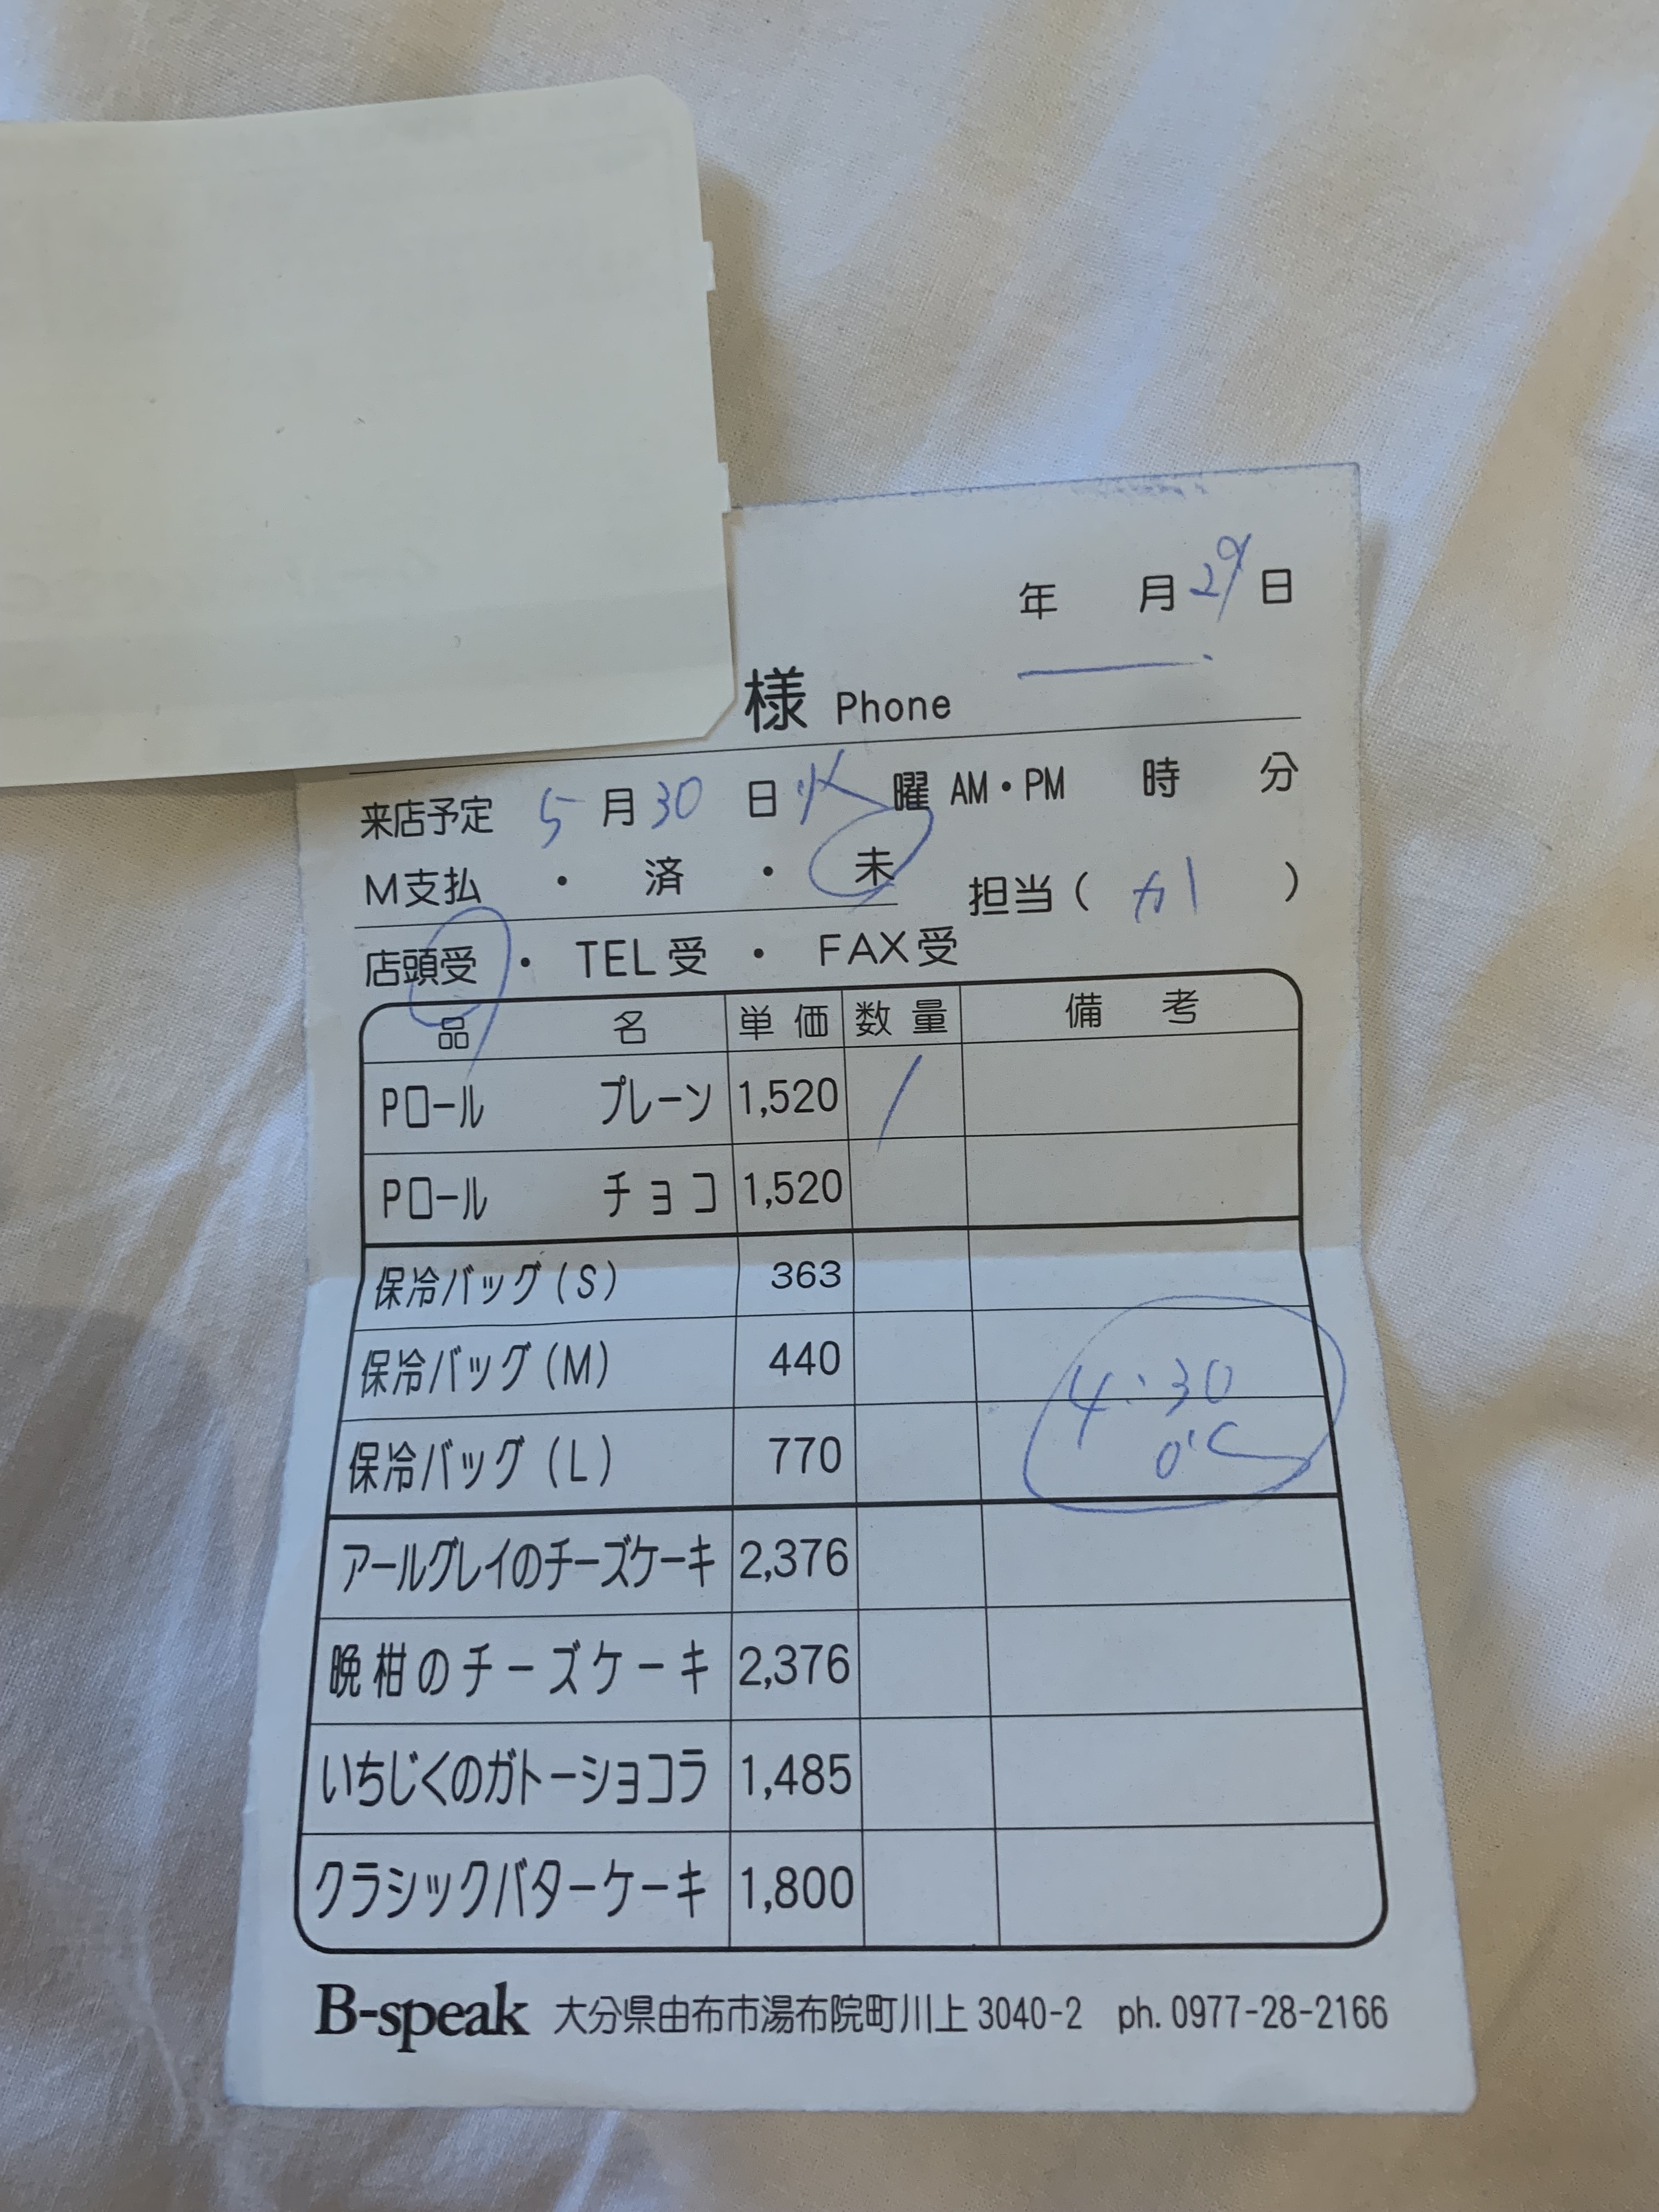 年 月 29 日
様 Phone
来店予定 5 月 30 日 火 曜 AM・PM 時 分
M支払 ・ 済 ・ 未 担当( )
店頭受 ・ TEL受 ・ FAX受
品 名 単価 数量 備考
Pロール プレーン 1,520 1
Pロール チョコ 1,520
保冷バッグ(S) 363
保冷バッグ(M) 440
4:30
保冷バッグ(L) 770
アールグレイのチーズケーキ 2,376
晩柑のチーズケーキ 2,376
いちじくのガトーショコラ 1,485
クラシックバターケーキ 1,800
B-speak 大分県由布市湯布院町川上 3040-2 ph. 0977-28-2166